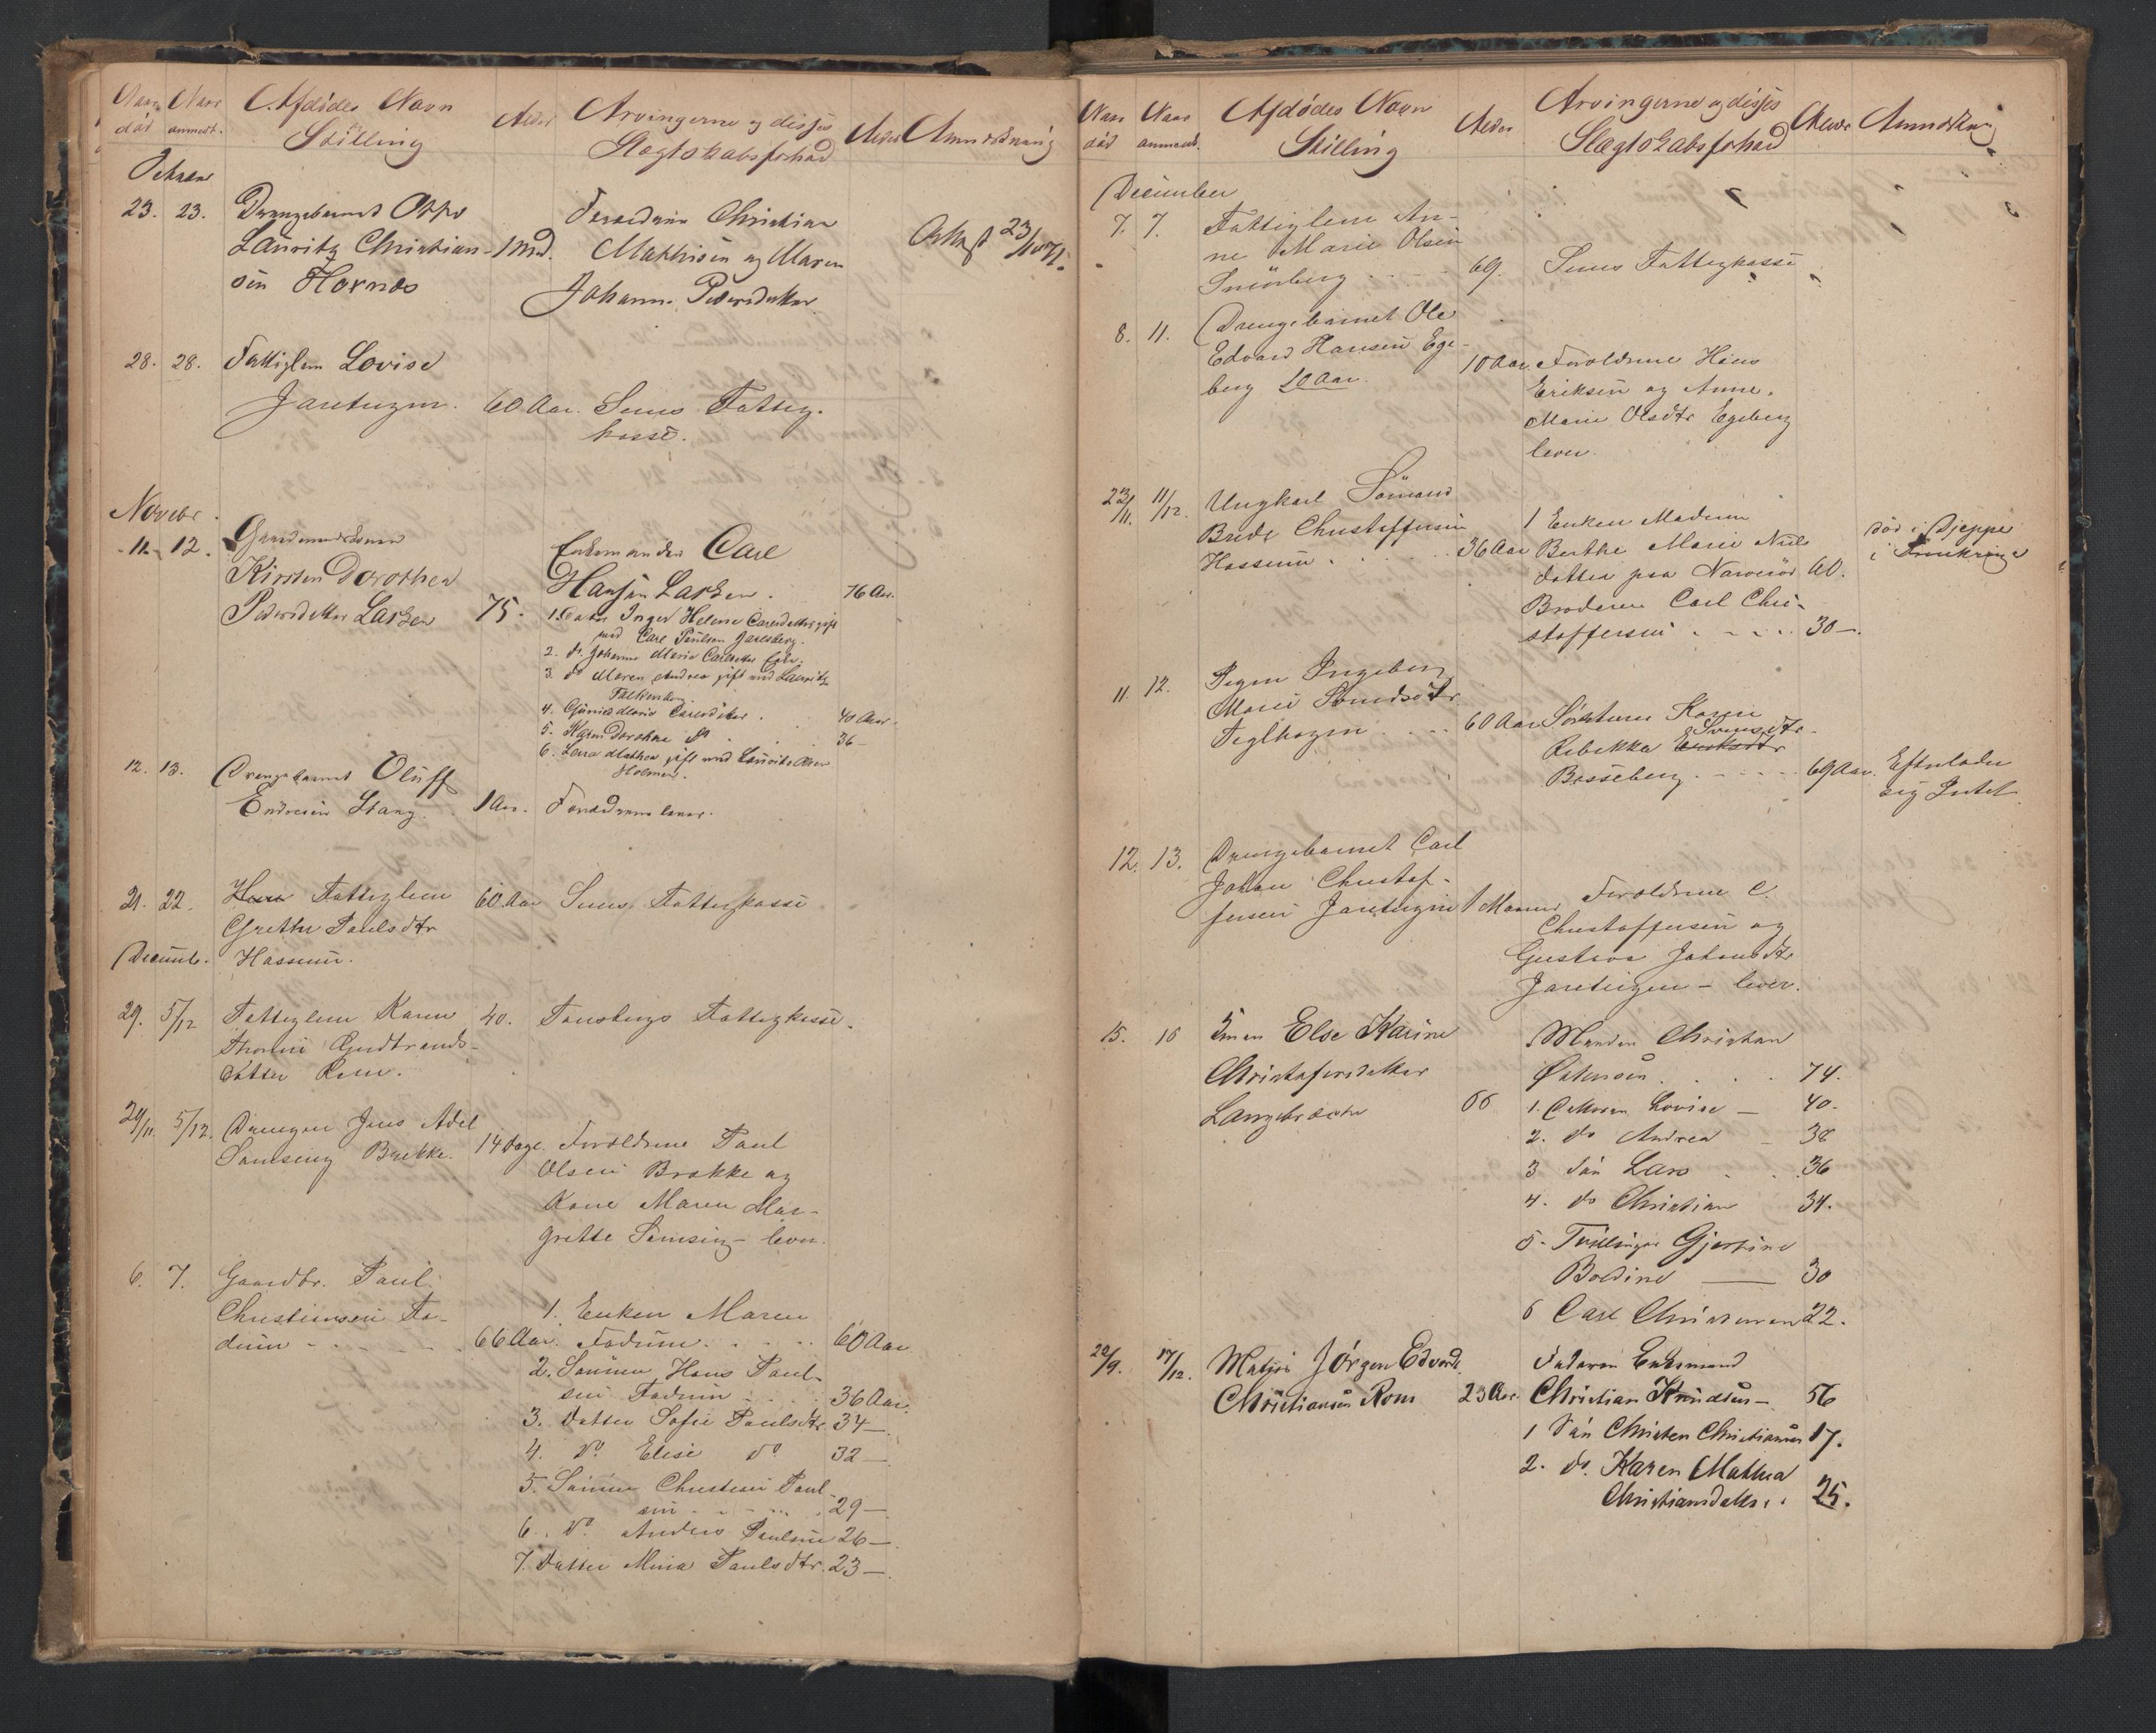 Naar død
Naar anmeldt.
Afdødes Navn
Stilling
Alder
Arvingerne og disses
Slægtskabsforhold
Alder
Anmærkning
October
23. 23. Drengebarnet Otto
Lauritz Christian-
sen Hornæs
1 Md.
Forældrene Christian
Mathisen og Maren
Johanne Pedersdatter
23/10 71.
28. 28. Fattiglem Lovise
Jareteigen. 60 Aar. Sems Fattig-
kasse.
Novebr.
11. 12. Gaardmandskonen
Kirsten Dorothea
Pedersdatter Larken 75.
Enkemanden Carl
Hansen Larken. 76 Aar.
1. Datter Inger Helene Carlsdatter gift
med Carl Paulsen Jarlsberg.
2. do. Johanne Marie Carlsdatter
3. do Maren Andrea gift med Lauritz
Falkenberg
4. Marie Carlsdatter. 40 Aar.
5. Karen Dorothea do 36 -
6. Mathea gift med Lauritz
Holmen.
12. 13. Drengebarnet Oluff
Endresen Stang. 1 Aar. Forældrene lever.
21. 22. Fattiglem 60 Aar Sems Fattigkasse
Grethe Paulsdtr
Hassum.
Decemb.
29. 5/12 Fattiglem Karen 40. Tønsbergs Fattigkasse.
Thomine Gudbrands-
datter Rom.
24/11. 5/12. Drengen Jens Adel
Samseng Brekke. 14 Dage. Forældrene Paul
Olsen Brekke og
Kone Maren Mar-
grette Samseng - lever.
6. 7. Gaardbr. Paul
Christiansen Fa-
dum - - - 66 Aar.
1. Enken Maren
Fadum. . . . 60 Aar
2. Sønnen Hans Paul-
sen Fadum . . 36 Aar.
3. Datter Sofie Paulsdtr. 34 -
4. do Elise do 32 -
5. Sønnen Christian Paul-
sen . . . 29 -
6. do Anders Paulsen 26 -
7. Datter Mina Paulsdtr. 23 -
Naar død
Naar anmeldt.
Afdødes Navn
Stilling
Alder
Arvingerne og disses
Slægtskabsforhold
Alder
Anmærkning
December
7. 7. Fattiglem An-
ne Marie Olsen
Smörberg . . . 69. Sems Fattigkasse
8. 11. Drengebarnet Ole
Edvard Hansen Ege-
berg 10 Aar. 10 Aar. Forældrene Hans
Eriksen og Anne
Marie Olsdtr Egeberg
lever.
23/11. 11/12. Ungkarl Sömand
Brede Christoffersen
Hassum . . . 36 Aar
1 Enken Madam
Berthe Marie Niels
datter paa Narverød 60.
Broderen Carl Chri-
stoffersen . . . . 30 -.
død i Dieppe
i Frankrige
11. 12. Pigen Ingeborg
Marie Svendsdtr
Teglhagen . . . 60 Aar Søsteren Karen
Rebekka Svensdtr
Basseberg . . . . 69 Aar. Efterlader
sig Intet
12. 13. Drengebarnet Carl
Johan Christof-
fersen Jareteigen 1 Maaned Forældrene C.
Christoffersen og
Gustava Johansdtr
Jareteigen - lever.
15. 16 Else Karine
Christofersdatter
Langbrække 66
Manden Christian
. . . 74.
1. Datteren Lovise - 40.
2. do Andrea - 38
3 Søn Lars . . 36
4. do Christian 34.
5. Tvillinger
Boldine — 30
6 Carl Christiansen 22.
22/9. 17/12. Matros Jörgen Edvard
Christiansen Rom 23 Aar.
Faderen Enkemand
Christian Knudsen - 56
1 Søn Christen Christiansen 17.
2. do. Karen Mathea
Christiansdatter. . 25.